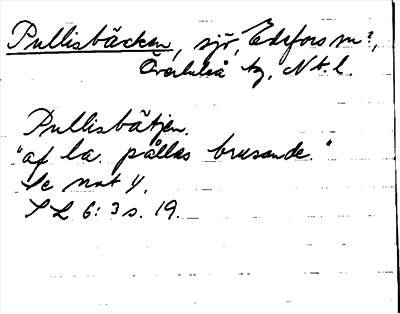 Pullisbäcken, sjö, Edefors sn?,
Överluleå tg, Nb. l.
Pullisbätjen.
"af la. pållas brusande."
Se not 4.
SL 6:3 s. 19.